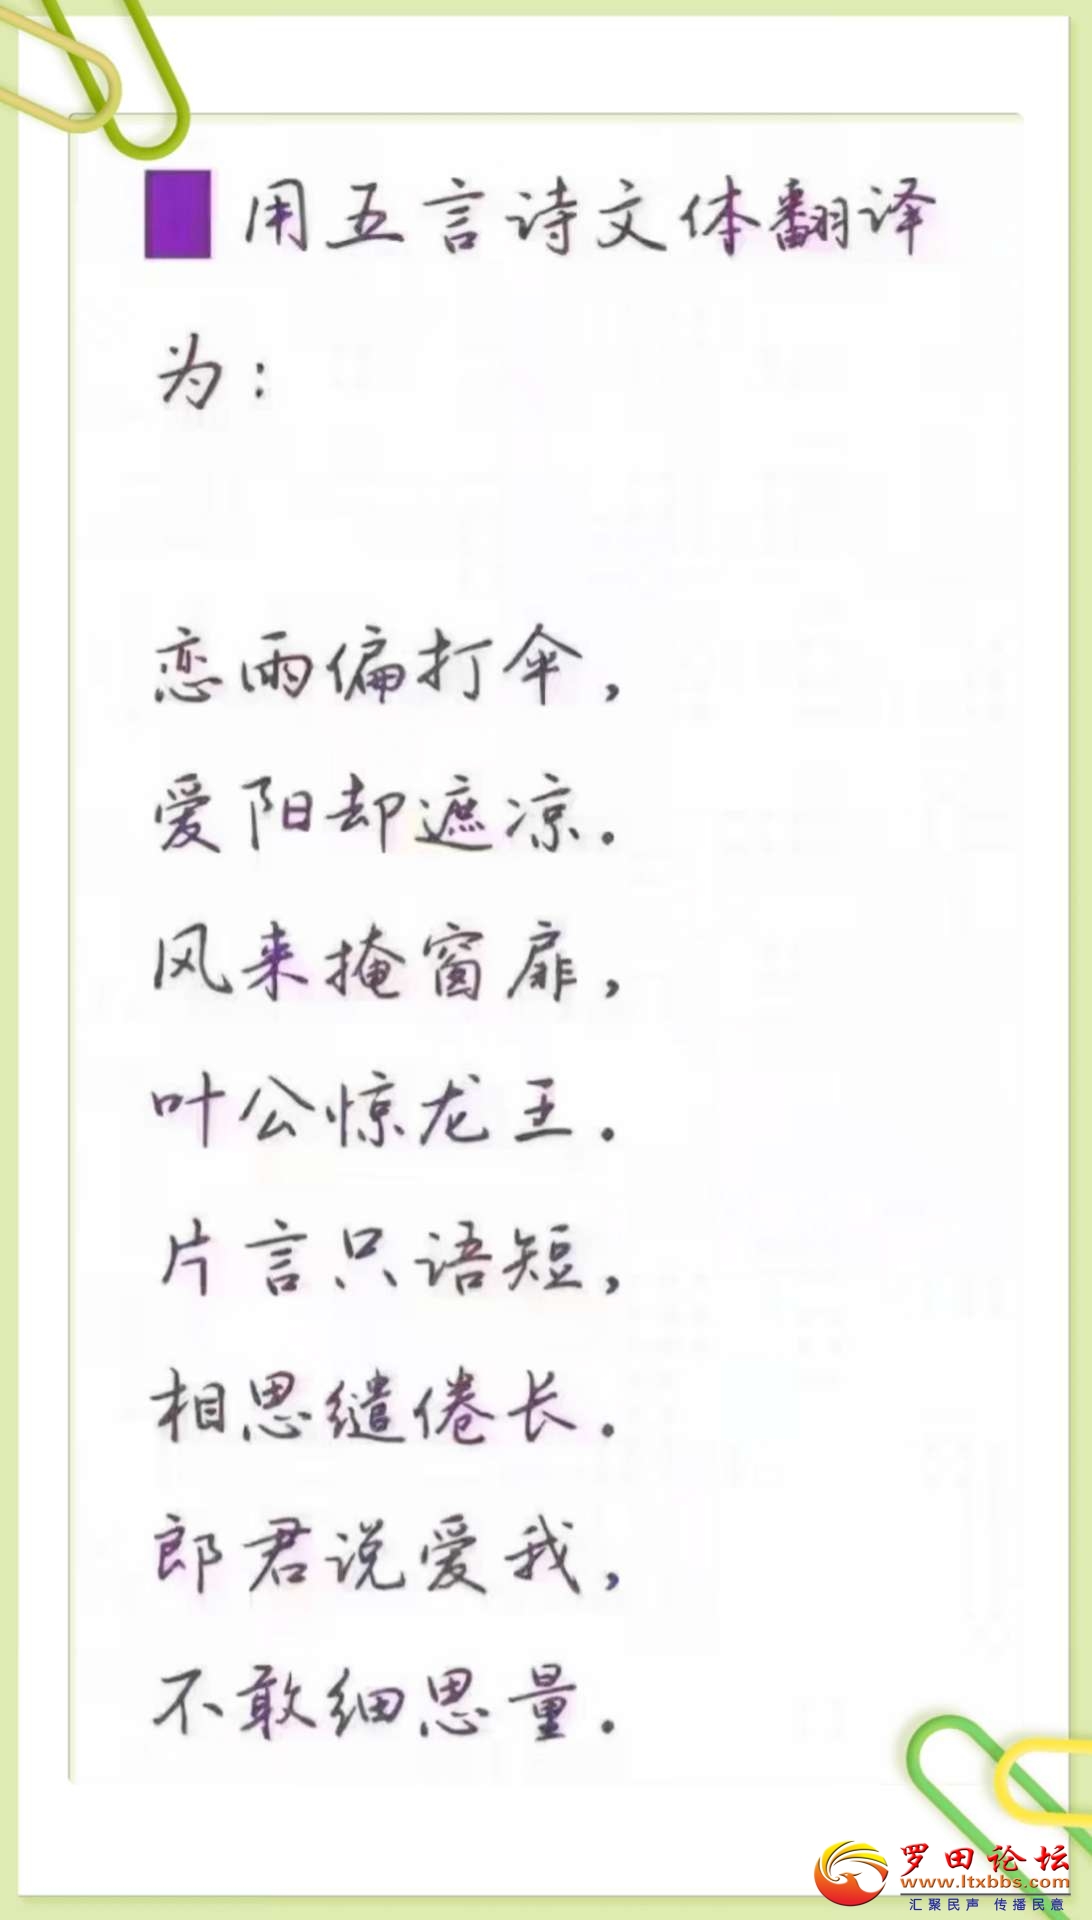 用五言诗文体翻译
为：
恋雨偏打伞，
爱阳却遮凉.
风来掩窗扉，
叶公惊龙王.
片言只语短，
相思缱倦长.
郎君说爱我，
不敢细思量.
罗田论坛
www.ltxbbs.com
汇聚民声 传播民意